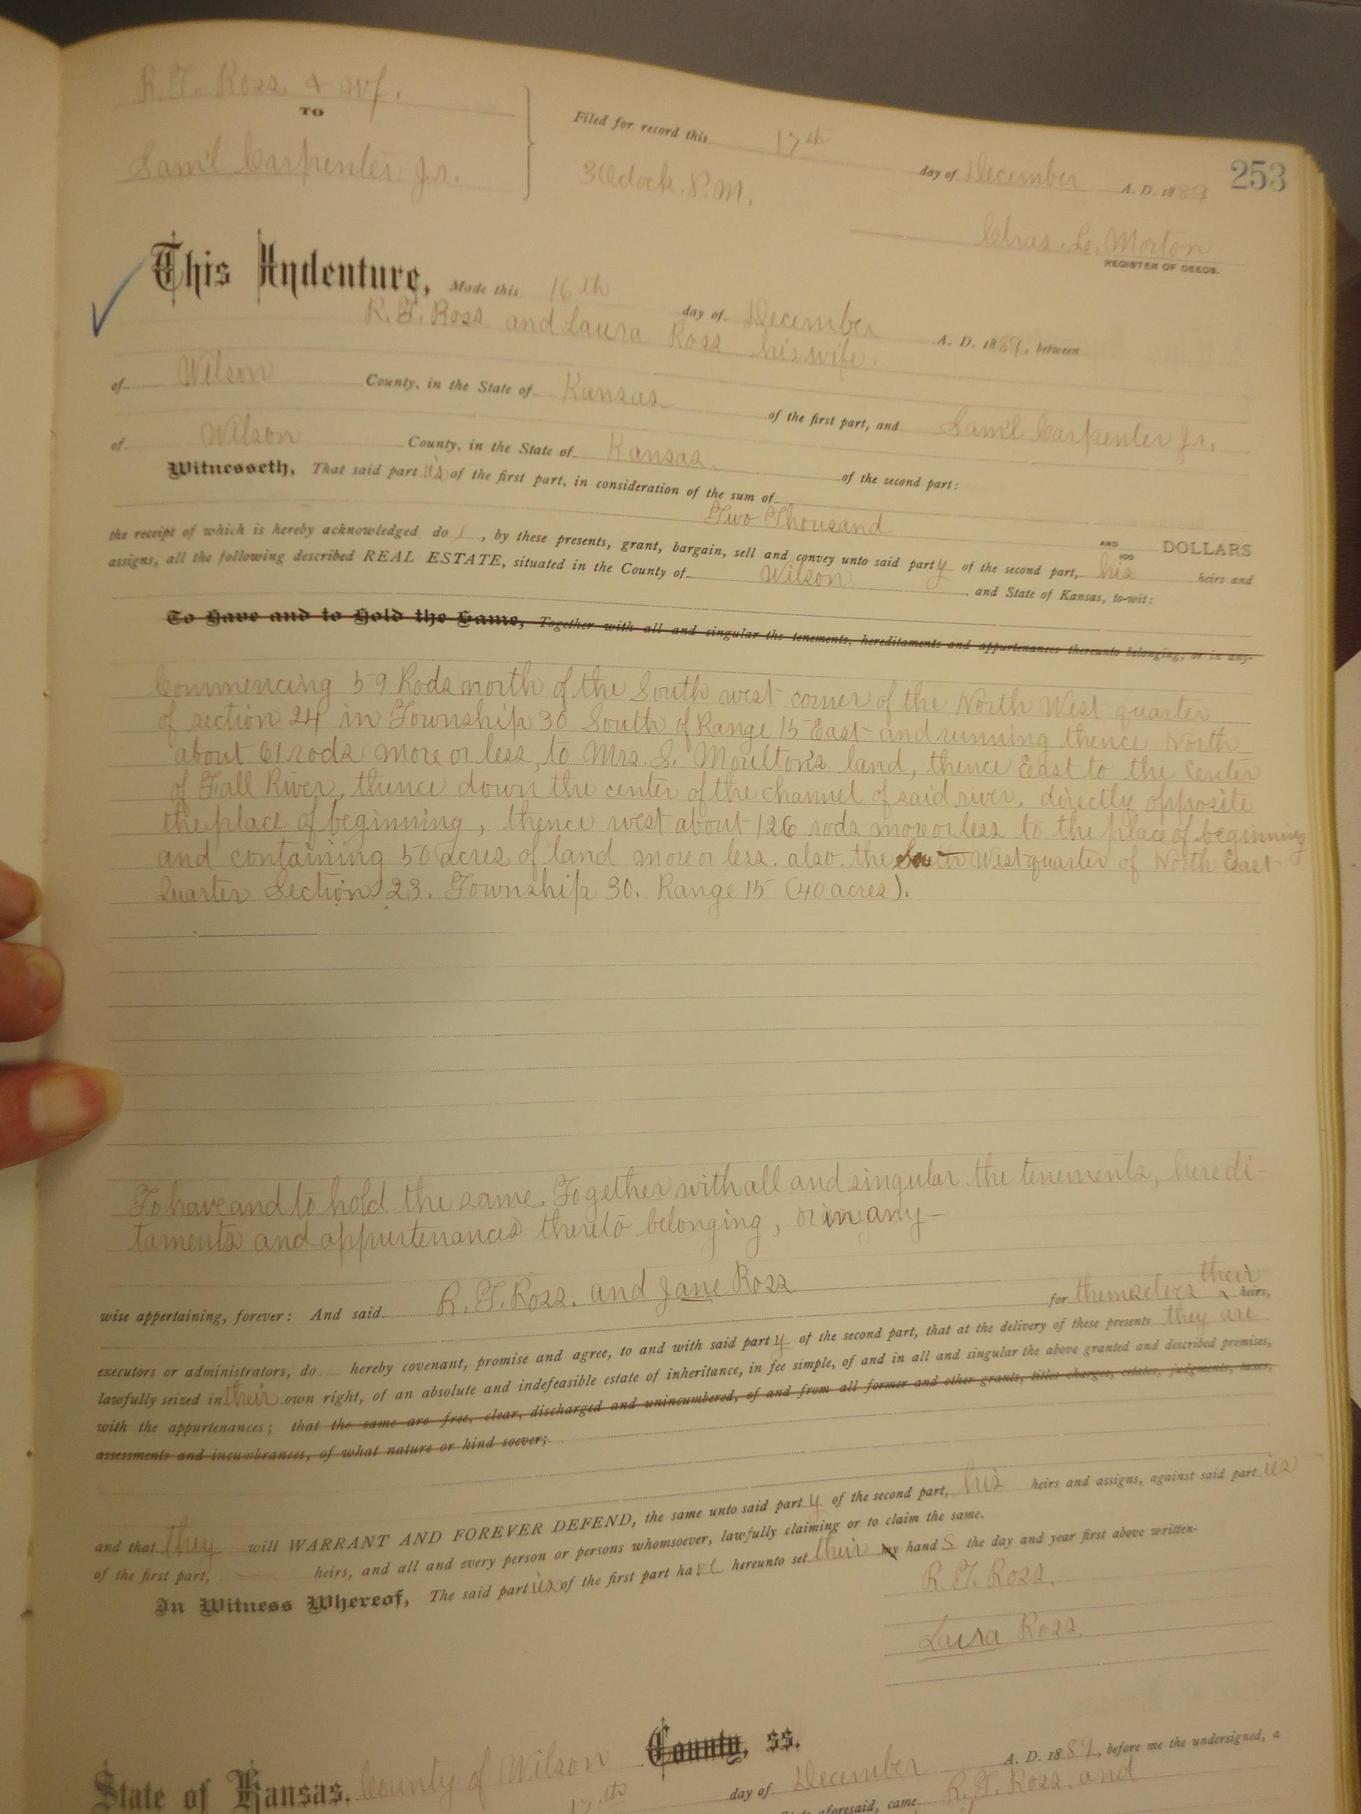 R.F. Ross & wf.
TO
Sam'l Carpenter Jr.
Filed for record this 17th day of December A. D. 1889
3 Oclock. P.M.
253
Chas. L. Morton
REGISTER OF DEEDS.
This Indenture, Made this 16th day of December A. D. 1889, between
R.F. Ross and Laura Ross his wife.
of Wilson County, in the State of Kansas of the first part, and Sam'l Carpenter Jr.
of Wilson County, in the State of Kansas. of the second part:
Witnesseth, That said parties of the first part, in consideration of the sum of
Two Thousand AND 100 DOLLARS
the receipt of which is hereby acknowledged do, by these presents, grant, bargain, sell and convey unto said party of the second part, his heirs and
assigns, all the following described REAL ESTATE, situated in the County of Wilson and State of Kansas, to-wit:
To Have and to Hold the Same, Together with all and singular the tenements, hereditaments and appurtenances thereunto belonging, or in any-
Commencing 59 Rods north of the South west corner of the North West quarter
of section 24 in Township 30 South of Range 15 East and running thence North
about 61 rods more or less, to Mrs. S. Moulton's land, thence East to the Center
of Fall River, thence down the center of the channel of said river, directly opposite
the place of beginning, thence west about 126 rods more or less to the place of beginning
and containing 50 acres of land more or less. also. the South West quarter of North East
Quarter Section 23. Township 30. Range 15 (40 acres).
To have and to hold the same. Together with all and singular the tenements, heredi-
taments and appurtenances thereto belonging, or in any-
wise appertaining, forever: And said R.F. Ross. and Jane Ross for themselves their heirs,
executors or administrators, do hereby covenant, promise and agree, to and with said party of the second part, that at the delivery of these presents they are
lawfully seized in their own right, of an absolute and indefeasible estate of inheritance, in fee simple, of and in all and singular the above granted and described premises,
with the appurtenances; that the same are free, clear, discharged and unincumbered, of and from all former and other grants, titles charges, estates, judgments, taxes,
assessments and incumbrances, of what nature or kind soever;
and that they will WARRANT AND FOREVER DEFEND, the same unto said party of the second part, his heirs and assigns, against said parties
of the first part, heirs, and all and every person or persons whomsoever, lawfully claiming or to claim the same.
In Witness Whereof, The said parties of the first part have hereunto set their my hands the day and year first above written-
R.F. Ross.
Laura Ross.
State of Kansas, County of Wilson County, ss.
17th day of December A. D. 1889, before me the undersigned, a
State aforesaid, came R.F. Ross, and